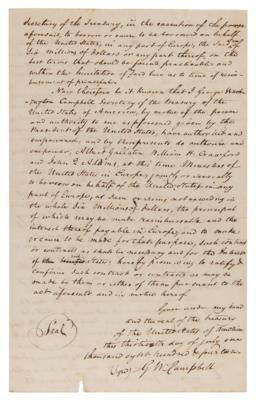 Secretary of the Treasury, in the execution of the power
aforesaid, to borrow or cause to be borrowed on behalf
of the United States, in any part of Europe, the sum of
Six Millions of dollars or any part thereof, on the
best terms that should be found practicable and
within the limitation of said Law as to time of reim-
bursement of principal.
Now therefore be it known that I George Wash-
ington Campbell Secretary of the Treasury of the
United States of America, by virtue of the power
and authority to me as aforesaid given by the
President of the United States, have authorized and
empowered, and by these presents do authorize and
empower, Albert Gallatin William H. Crawford
and John Q. Adams, at this time Ministers of
the United States in Europe, jointly or severally
to borrow on behalf of the United States in any
part of Europe, a Sum or sums not exceeding in
the whole Six Millions of Dollars, the principal
of which may be made reimbursable and the
interest thereof payable in Europe; and to make
or cause to be made for that purpose, such contract
or contracts as shall be necessary and for the Interest
of the States; hereby promising to ratify &
confirm such contract or contracts as may be
made by them or either of them pursuant to the
act aforesaid and in virtue hereof
Given under my hand
and the seal of the treasury
of the United States at Washington
this thirteenth day of July one
thousand eight hundred & fourteen
Seal
G W Campbell